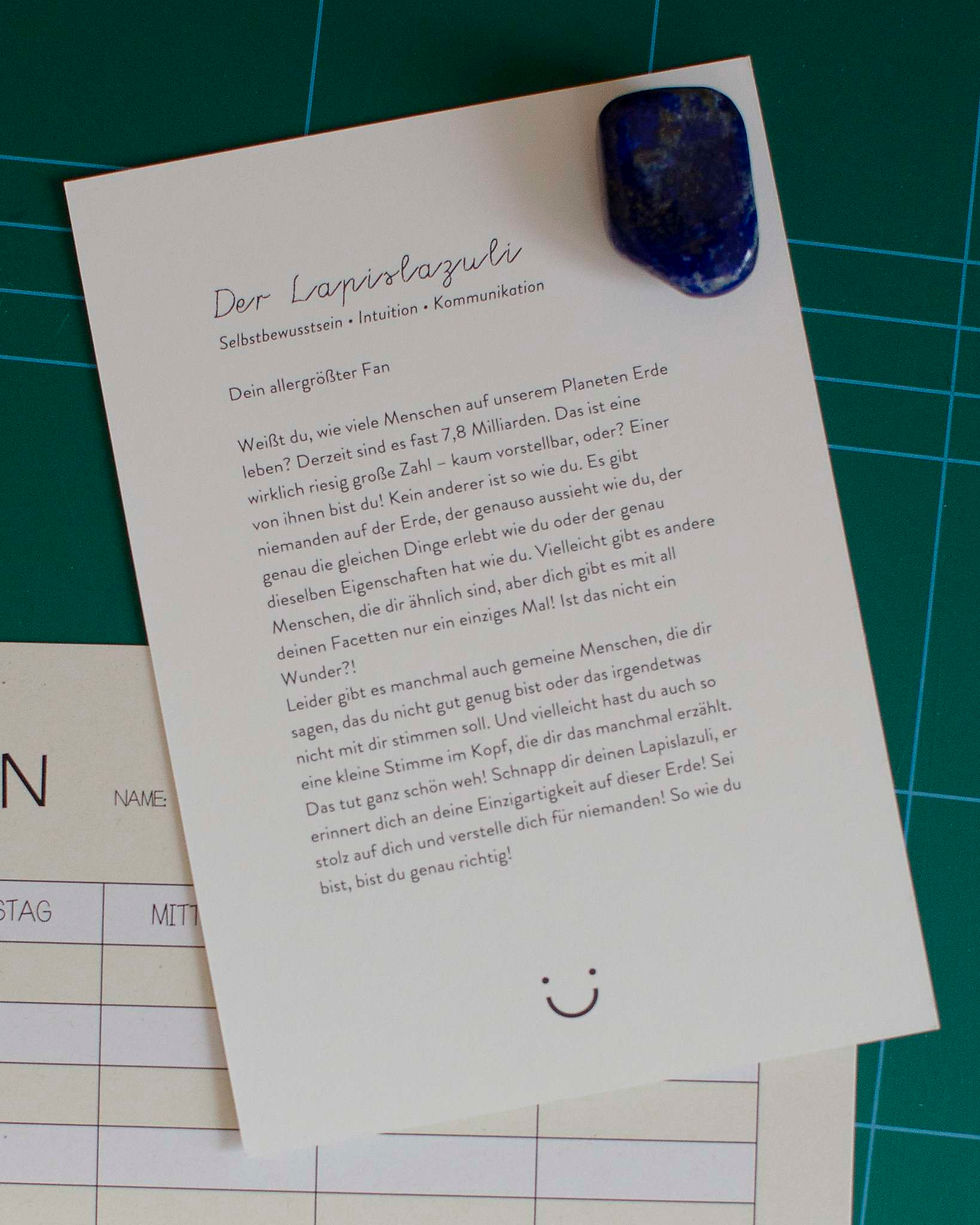 Der Lapislazuli
Selbstbewusstsein • Intuition • Kommunikation
Dein allergrößter Fan
Weißt du, wie viele Menschen auf unserem Planeten Erde
leben? Derzeit sind es fast 7,8 Milliarden. Das ist eine
wirklich riesig große Zahl – kaum vorstellbar, oder? Einer
von ihnen bist du! Kein anderer ist so wie du. Es gibt
niemanden auf der Erde, der genauso aussieht wie du, der
genau die gleichen Dinge erlebt wie du oder der genau
dieselben Eigenschaften hat wie du. Vielleicht gibt es andere
Menschen, die dir ähnlich sind, aber dich gibt es mit all
deinen Facetten nur ein einziges Mal! Ist das nicht ein
Wunder?!
Leider gibt es manchmal auch gemeine Menschen, die dir
sagen, das du nicht gut genug bist oder das irgendetwas
nicht mit dir stimmen soll. Und vielleicht hast du auch so
eine kleine Stimme im Kopf, die dir das manchmal erzählt.
Das tut ganz schön weh! Schnapp dir deinen Lapislazuli, er
erinnert dich an deine Einzigartigkeit auf dieser Erde! Sei
stolz auf dich und verstelle dich für niemanden! So wie du
bist, bist du genau richtig!
N
NAME:
STAG
MITT